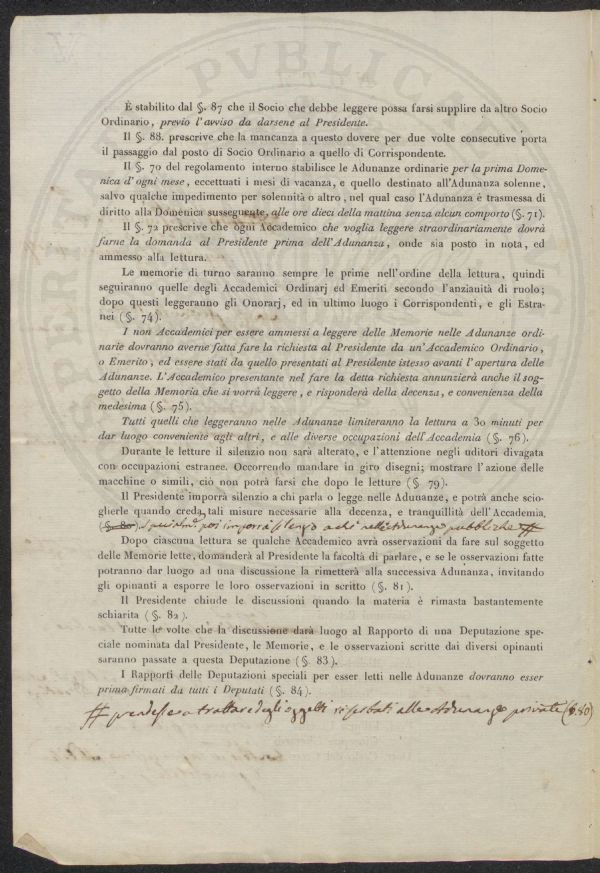 È stabilito dal §. 87 che il Socio che debbe leggere possa farsi supplire da altro Socio
Ordinario, previo l'avviso da darsene al Presidente.
Il §. 88. prescrive che la mancanza a questo dovere per due volte consecutive porta
il passaggio dal posto di Socio Ordinario a quello di Corrispondente.
Il §. 70 del regolamento interno stabilisce le Adunanze ordinarie per la prima Dome-
nica d'ogni mese, eccettuati i mesi di vacanza, e quello destinato all'Adunanza solenne,
salvo qualche impedimento per solennità o altro, nel qual caso l'Adunanza è trasmessa di
diritto alla Domenica susseguente, alle ore dieci della mattina senza alcun comporto (§. 71).
Il §. 72 prescrive che ogni Accademico che voglia leggere straordinariamente dovrà
farne la domanda al Presidente prima dell'Adunanza, onde sia posto in nota, ed
ammesso alla lettura.
Le memorie di turno saranno sempre le prime nell'ordine della lettura, quindi
seguiranno quelle degli Accademici Ordinarj ed Emeriti secondo l'anzianità di ruolo;
dopo questi leggeranno gli Onorarj, ed in ultimo luogo i Corrispondenti, e gli Estra-
nei (§. 74).
I non Accademici per essere ammessi a leggere delle Memorie nelle Adunanze ordi-
narie dovranno averne fatta fare la richiesta al Presidente da un'Accademico Ordinario,
o Emerito, ed essere stati da quello presentati al Presidente istesso avanti l'apertura delle
Adunanze. L'Accademico presentante nel fare la detta richiesta annunzierà anche il sog-
getto della Memoria che si vorrà leggere, e risponderà della decenza, e convenienza della
medesima (§. 75).
Tutti quelli che leggeranno nelle Adunanze limiteranno la lettura a 30 minuti per
dar luogo conveniente agli altri, e alle diverse occupazioni dell'Accademia (§. 76).
Durante le letture il silenzio non sarà alterato, e l'attenzione negli uditori divagata
con occupazioni estranee. Occorrendo mandare in giro disegni; mostrare l'azione delle
macchine o simili, ciò non potrà farsi che dopo le letture (§. 79).
Il Presidente imporrà silenzio a chi parla o legge nelle Adunanze, e potrà anche scio-
glierle quando creda tali misure necessarie alla decenza, e tranquillità dell'Accademia
(§. 80) poi imporrà silenzio a chi nelle Adunanze pubbliche #
Dopo ciascuna lettura se qualche Accademico avrà osservazioni da fare sul soggetto
delle Memorie lette, domanderà al Presidente la facoltà di parlare, e se le osservazioni fatte
potranno dar luogo ad una discussione la rimetterà alla successiva Adunanza, invitando
gli opinanti a esporre le loro osservazioni in scritto (§. 81).
Il Presidente chiude le discussioni quando la materia è rimasta bastantemente
schiarita (§. 82).
Tutte le volte che la discussione darà luogo al Rapporto di una Deputazione spe-
ciale nominata dal Presidente, le Memorie, e le osservazioni scritte dai diversi opinanti
saranno passate a questa Deputazione (§. 83).
I Rapporti delle Deputazioni speciali per esser letti nelle Adunanze dovranno esser
prima firmati da tutti i Deputati (§. 84).
# prendesse a trattare degli oggetti riserbati alle Adunanze private (§. 80)